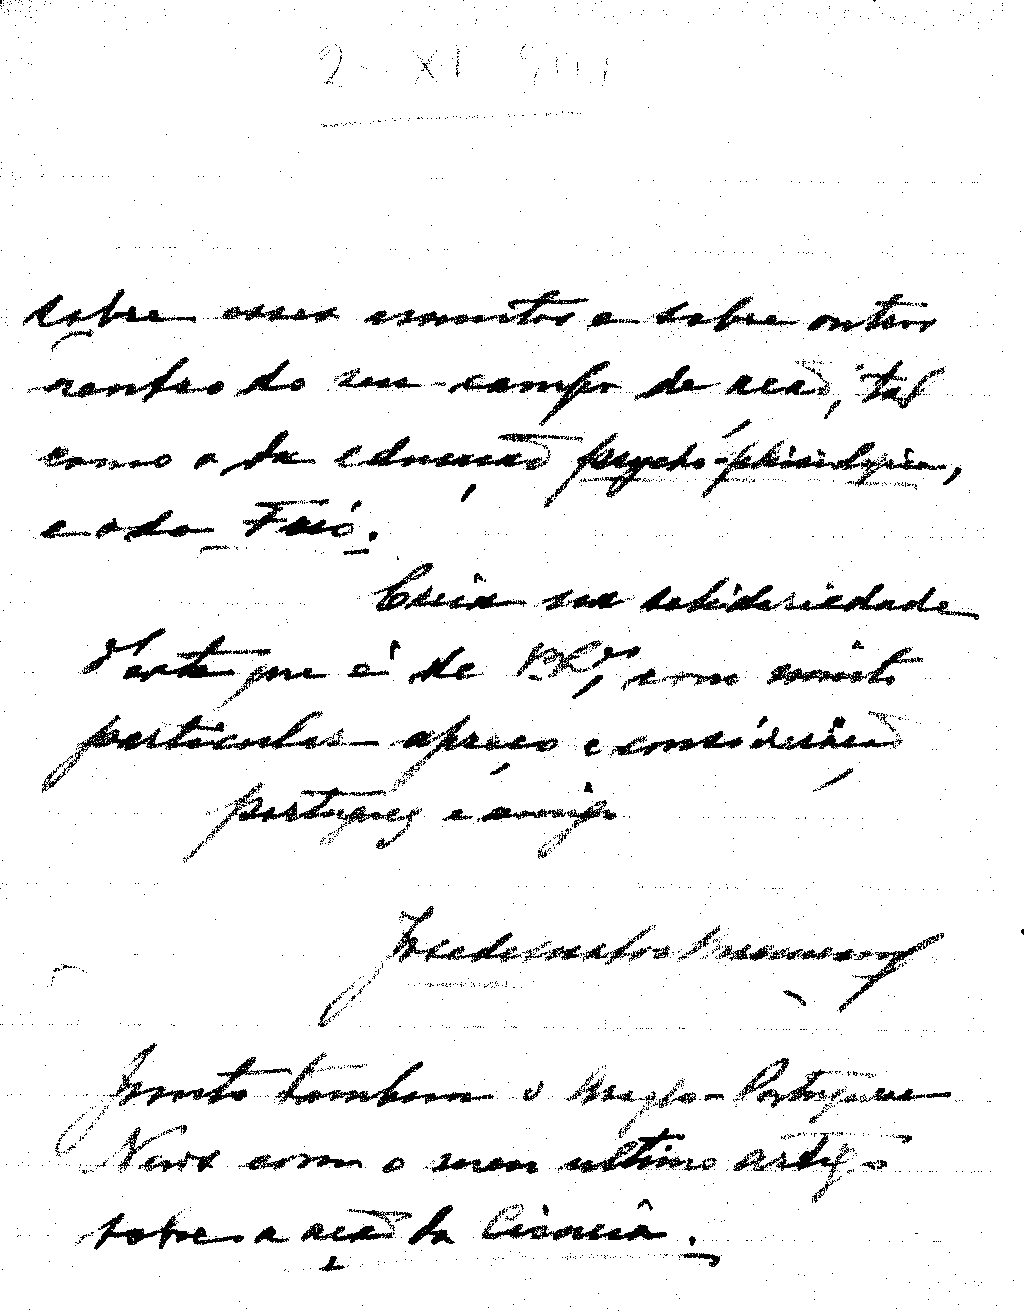 2 XI
sobre esses assuntos e sobre outros
dentro do seu campo de acção, tal
como o da educação psycho-phisiologica,
e o do
Creia na solidariedade
d'este que é de com muito
particular apreço e consideração
portuguez e amigo
Junto tambem o Anglo-Portuguese
News com o meu ultimo artigo
sobre a acção da Ciencia.